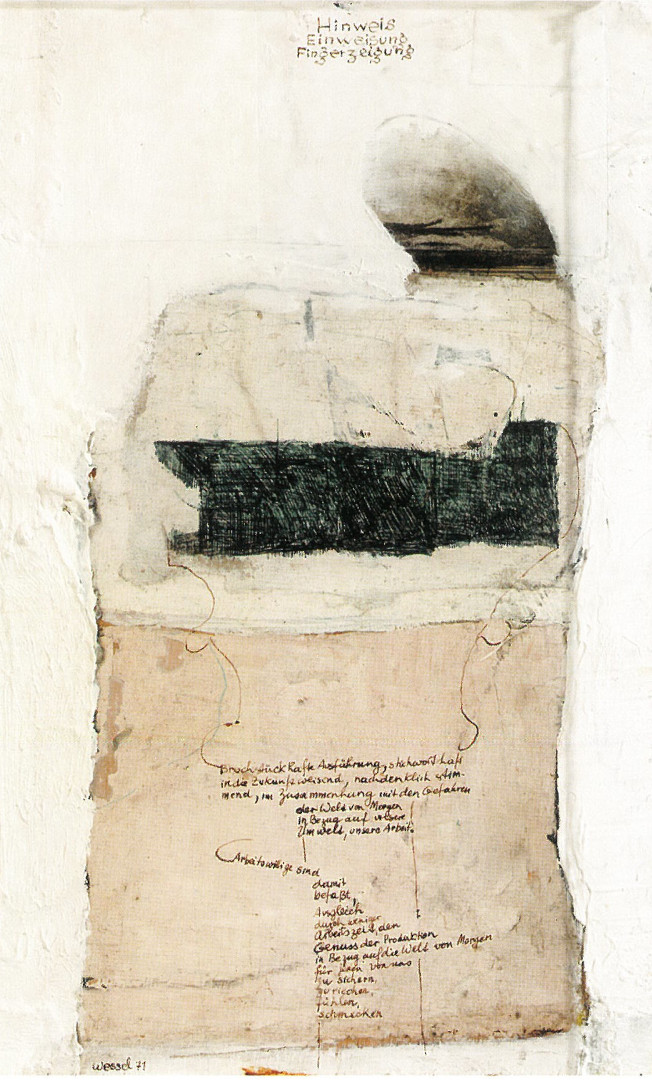 Hinweis
Einweisung
Fingerzeigung
Bruchstückhafte Ausführung, stichworthaft
in die Zukunft weisend, nachdenklich stim-
mend, im Zusammenhang mit den Gefahren
der Welt von Morgen
in Bezug auf unsere
Umwelt, unsere Arbeit.
Arbeitswillige sind
damit
befaßt,
Ausgleich
durch weniger
Arbeitszeit, den
Genuss der Produktion
in Bezug auf die Welt von Morgen
für jeden von uns
zu sichern,
zu riechen,
fühlen,
schmecken
Wessel 71